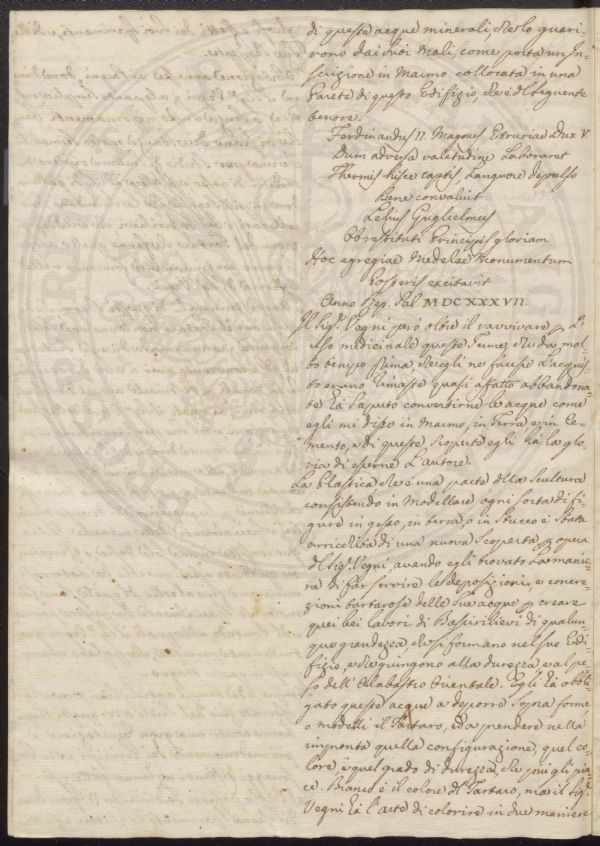 di queste acque minerali, che lo guari-
rono dai suoi mali, come porta un In-
scrizione in Marmo collocata in una
Parete di questo Edifizio, che è del seguente
tenore.
Ferdinandus II. Magnus Etruriae Dux V.
Dum adversa valetudine Laboraret
Thermis hisce captis, Languore depulso
Bene convaluit
Lelius Guglielmus
Ob restituti Principis gloriam
Hoc egregiae Medelae Monumentum
Posteris excitavit
Anno Rep. Sal. MDCXXXVII.
Il Sigr. Vegni però oltre il ravvivare p L'
uso medicinale queste Fumex, che da mol-
to tempo prima, che egli ne facesse L'acquis-
to erano rimaste quasi affatto abbandona-
te hà saputo convertirne le acque come
egli mi disse in Marmo, in Terra e in Ce-
mento, e di queste scoperte egli hà la glo-
ria di esserne L'autore.
La Plastica che è una parte della Scultura
consistendo in Modellare ogni sorta di fi-
gure in gesso, in terra, o in Stucco è Stata
arricchita di una nuova Scoperta p opera
del Sigr. Vegni, avendo egli trovato La manie-
ra di far servire le deposizioni, e concre-
zioni tartarose delle Sue acque p creare
quei bei lavori di Bassirilievi di qualun-
que grandezza che si formano nel suo Edi-
fizio, e che giungono alla durezza e al pe-
so dell' Alabastro Orientale. Egli hà obbli-
gato queste acque a deporre sopra forme
o modelli il Tartaro, ed a prendere nella
impronta quella configurazione, quel co-
lore e quel grado di durezza, che più gli pia-
ce. Bianco è il colore del Tartaro, ma il Sigr.
Vegni hà l'arte di colorire in due maniere